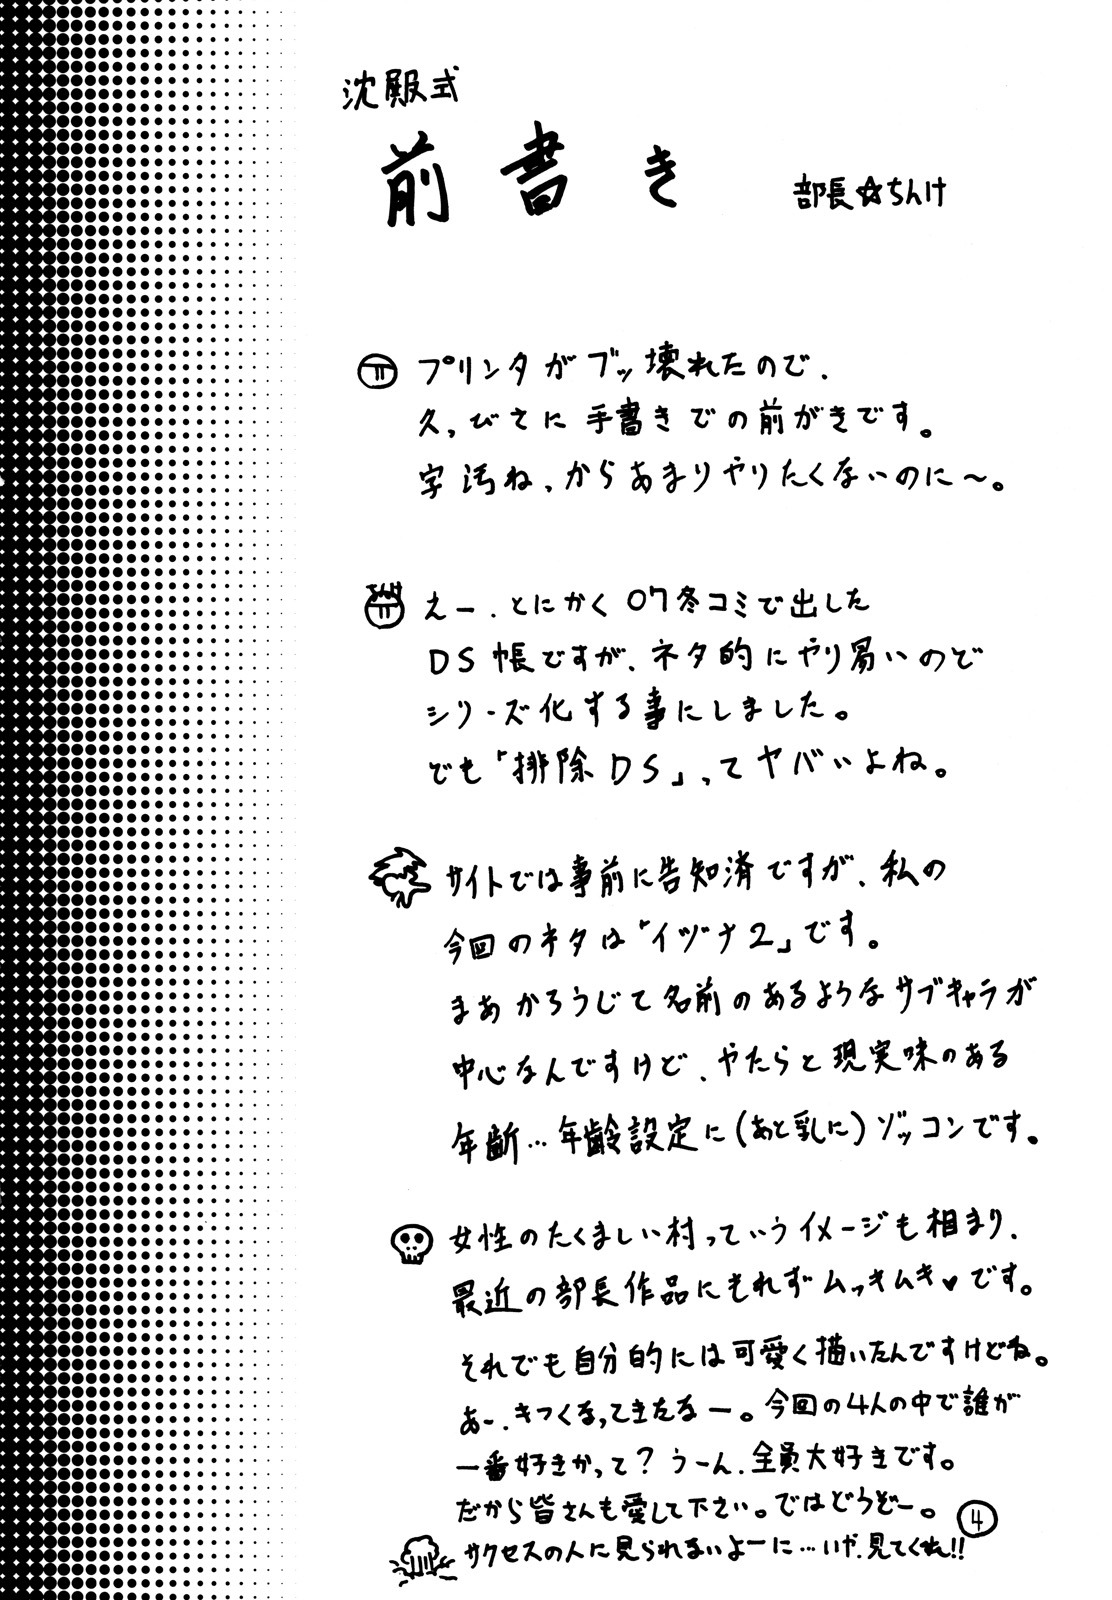 沈殿式
前書き
部長☆ちんけ
プリンタがブッ壊れたので、
久っびさに手書きでの前がきです。
字汚ねっからあまりやりたくないのに〜。
えー、とにかく07冬コミで出した
DS帳ですが、ネタ的にやり易いので
シリーズ化する事にしました。
でも「排除DS」ってヤバいよね。
サイトでは事前に告知済ですが、私の
今回のネタは「イヅナ2」です。
まあかろうじて名前のあるようなサブキャラが
中心なんですけど、やたらと現実味のある
年齢…年齢設定に(あと乳に)ゾッコンです。
女性のたくましい村っていうイメージも相まり、
最近の部長作品にもれずムっきムき♥です。
それでも自分的には可愛く描いたんですけどね。
あー、きつくなってきたなー。今回の4人の中で誰が
一番好きかって?うーん、全員大好きです。
だから皆さんも愛して下さい。ではどうぞー。
④
サクセスの人に見られないよーに…いや、見てくれ!!